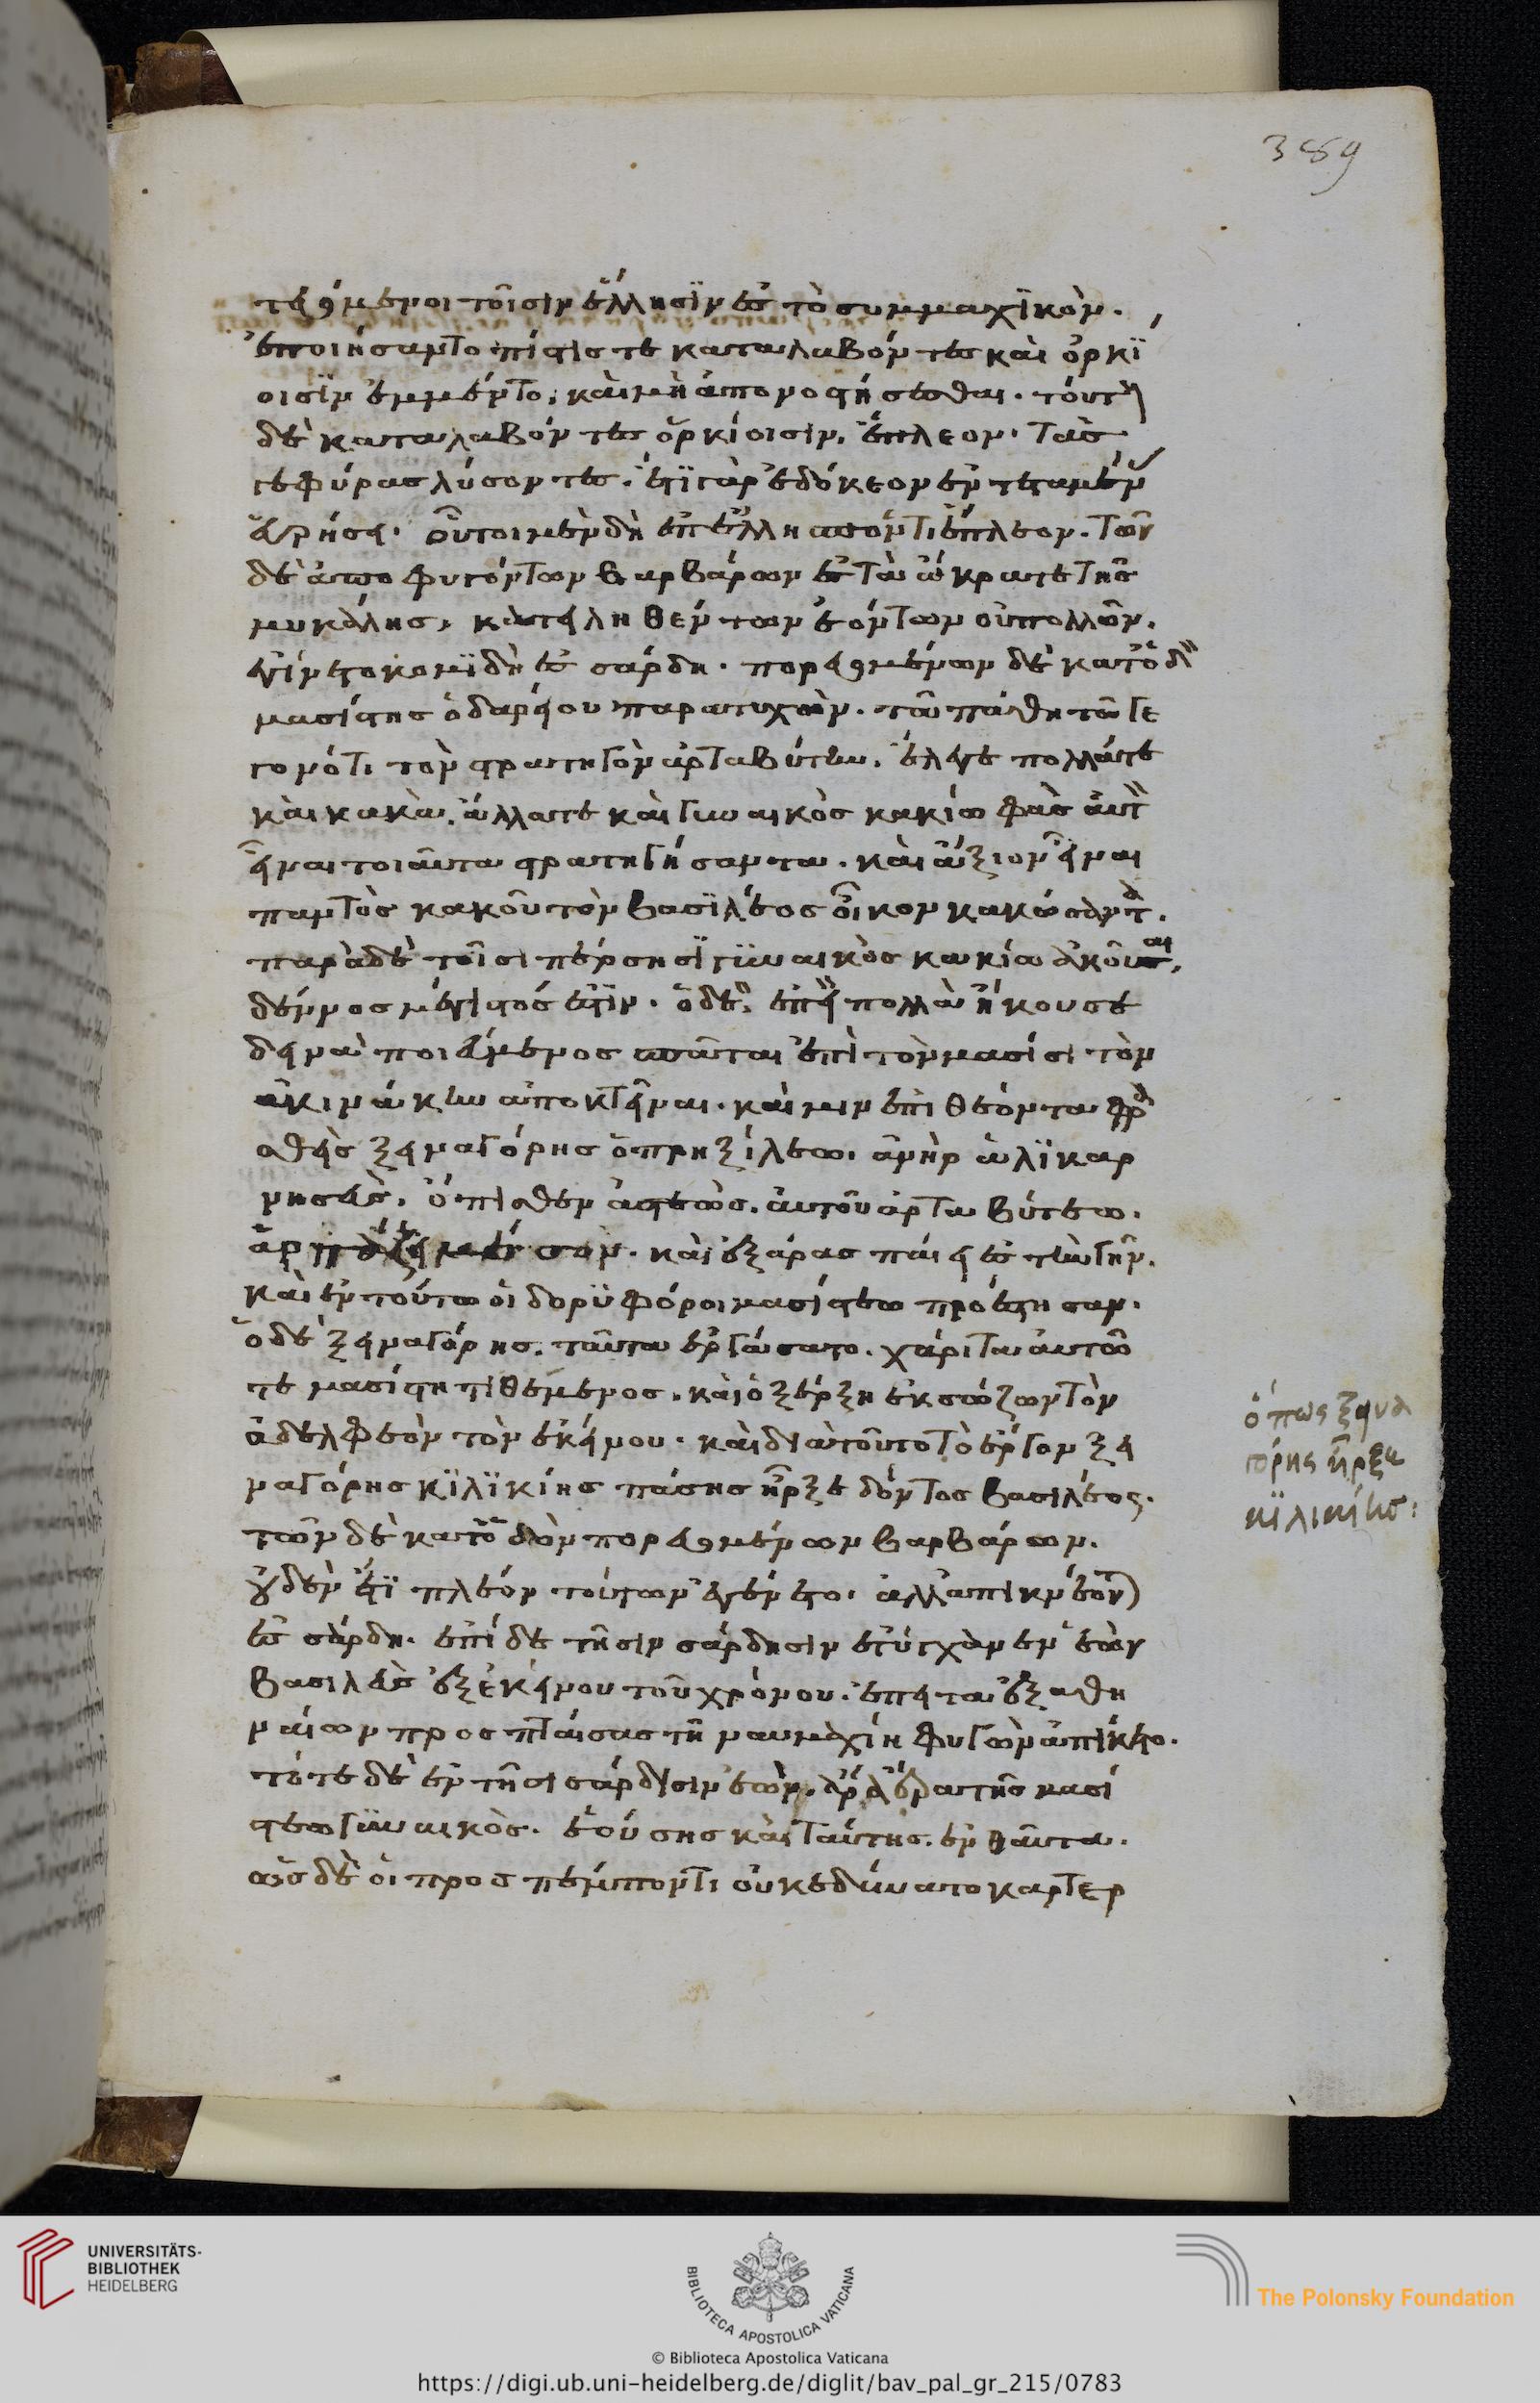 389
τευόμενοι τοῖσιν ἕλλησϊν ἐς τὸ συμμαχϊκὸν.
ἐποιήσαντο πίστίς τε καταλαβόντες καὶ ὁρκϊ
οισϊν ἐμμενέειν, καὶ μὴ ἀποστήσεσθαι. τούτους
δὲ καταλαβόντες ὁρκίοισιν, ἔπλεον. τὰς
γεφύρας λύσοντες. ἔτϊ γὰρ ἐδόκεον ἐντεταμένας
εὑρήσειν. οὗτοι μὲν δὴ ἐπ' ἑλλησπόντου ἔπλεον. τῶν
δὲ ἀποφυγόντων βαρβάρων ἐς τὰ ἄκρα τε τῆς
μυκάλης, κατειληθέντων ἐόντων οὐ πολλῶν.
ἐγίνετο κομϊδὴ ἐς σάρδις. πορευομένων δὲ κατ' ὁδὸν
μασίστης ὁ δαρείου παρατυχὼν. τῶ πάθει τῶ γε
γονότι τὸν στρατηγὸν ἀρταβύτην, ἔλεγε πολλά τε
καὶ κακὰ. ἄλλα τε καὶ γυναικὸς κακίω φὰς αὐτὸν
εἶναι τοιαῦτα στρατηγήσαντα. καὶ ἄξιον εἶναι
παντὸς κακοῦ τὸν βασϊλέος οἶκον κακώσαντα.
παρὰ δὲ τοῖσι πέρσησϊ γϋναικὸς κακίω ἀκοῦσαι,
δέννος μέγιστός ἐστϊν. ὁ δὲ, ἐπεὶ πολλὰ ἤκουσε
δεινὰ ποιεύμενος σπᾶται ἐπὶ τὸν μασίστην τὸν
ἀκινάκην ἀποκτεῖναι. καὶ μιν ἐπιθέοντα φρα
σθεὶς ξειναγόρης ὁ πρηξίλεω, ἀνὴρ ἁλϊκαρ
νησεὺς, ὄπισθεν ἑστεὼς. αὐτοῦ ἀρταβύτεω.
ἁρπάζει μέσον. καὶ ἐξάρας παίει ἐς τὴν γῆν.
καὶ ἐν τούτω οἱ δορϋφόροι μασίστεω προέστησαν.
ὁ δὲ ξειναγόρης. ταῦτα ἐργάσατο. χάριτα αὐτῶ
τε μασίστη τϊθέμενος. καὶ ὁ ξέρξη ἐκσώζων τὸν
ἀδελφεὸν τὸν ἐκείνου. καὶ διὰ τοῦτο τὸ ἔργον ξει
ναγόρης κϊλϊκίης πάσης ἦρξε δόντος βασιλέος.
τῶν δὲ κατ' ὁδὸν πορευομένων βαρβάρων.
οὐδὲν ἔτϊ πλέον τούτων ἐγένετο. ἀλλ' ἀπικνέονται
ἐς σάρδις. ἐπὶ δὲ τῆσιν σάρδησιν ἐτύγχανεν ἐὼν
βασιλεὺς ἐξ ἐκείνου τοῦ χρόνου. ἐπεί τε ἐξ ἀθη
ναίων προσπταίσας τῆ ναυμαχίη φυγὼν ἀπίκετο.
τότε δὲ ἐν τῆσι σάρδισιν ἐὼν, ἄρα ἤρα τῆς μασί
στεω γϋναικὸς. ἐούσης καὶ ταύτης. ἐνθαῦτα.
ὡς δὲ οἱ προσπέμποντι οὐκ ἐδύνατο κατερ
ὅπως ξεινα
γόρης ἦρξε
κϊλικίης:
UNIVERSITÄTS-
BIBLIOTHEK
HEIDELBERG
BIBLIOTECA APOSTOLICA VATICANA
The Polonsky Foundation
© Biblioteca Apostolica Vaticana
https://digi.ub.uni-heidelberg.de/diglit/bav_pal_gr_215/0783